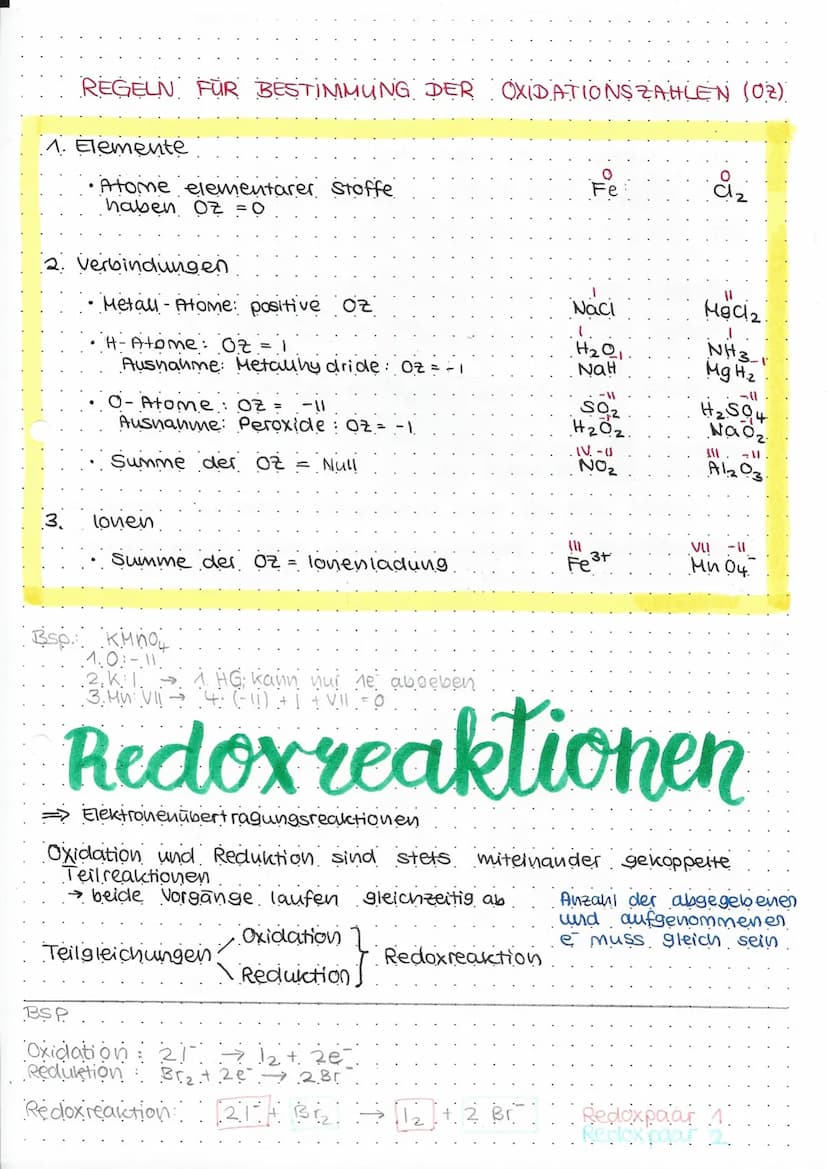 REGELN FÜR BESTIMMUNG DER OXIDATIONSZAHLEN (OZ)
1. Elemente
• Atome elementarer Stoffe
haben OZ = 0
0 0
Fe Cl₂
2. Verbindungen
• Metall-Atome: positive OZ
I II
NaCl MgCl₂
• H-Atome: OZ = I
I I
H₂O NH₃
Ausnahme: Metallhydride: OZ = -I
-I -I
NaH MgH₂
• O-Atome: OZ = -II
-II -II
SO₂ H₂SO₄
Ausnahme: Peroxide: OZ = -I
H₂O₂ NaO₂
• Summe der OZ = Null
IV -II III -II
NO₂ Al₂O₃
3. Ionen
• Summe der OZ = Ionenladung
III VII -II
Fe³⁺ MnO₄⁻
Bsp.: KMnO₄
1. O: -II
2. K: I → 1. HG; kann nur 1e⁻ abgeben
3. Mn: VII → 4·(-II) + I + VII = 0
Redoxreaktionen
⇒ Elektronenübertragungsreaktionen
Oxidation und Reduktion sind stets miteinander gekoppelte
Teilreaktionen
→ beide Vorgänge laufen gleichzeitig ab
Anzahl der abgegebenen
und aufgenommenen
e⁻ muss gleich sein
Oxidation
Teilgleichungen Redoxreaktion
Reduktion
BSP
Oxidation: 2I⁻ → I₂ + 2e⁻
Reduktion: Br₂ + 2e⁻ → 2Br⁻
Redoxreaktion: 2I⁻ + Br₂ → I₂ + 2 Br⁻
Redoxpaar 1
Redoxpaar 2